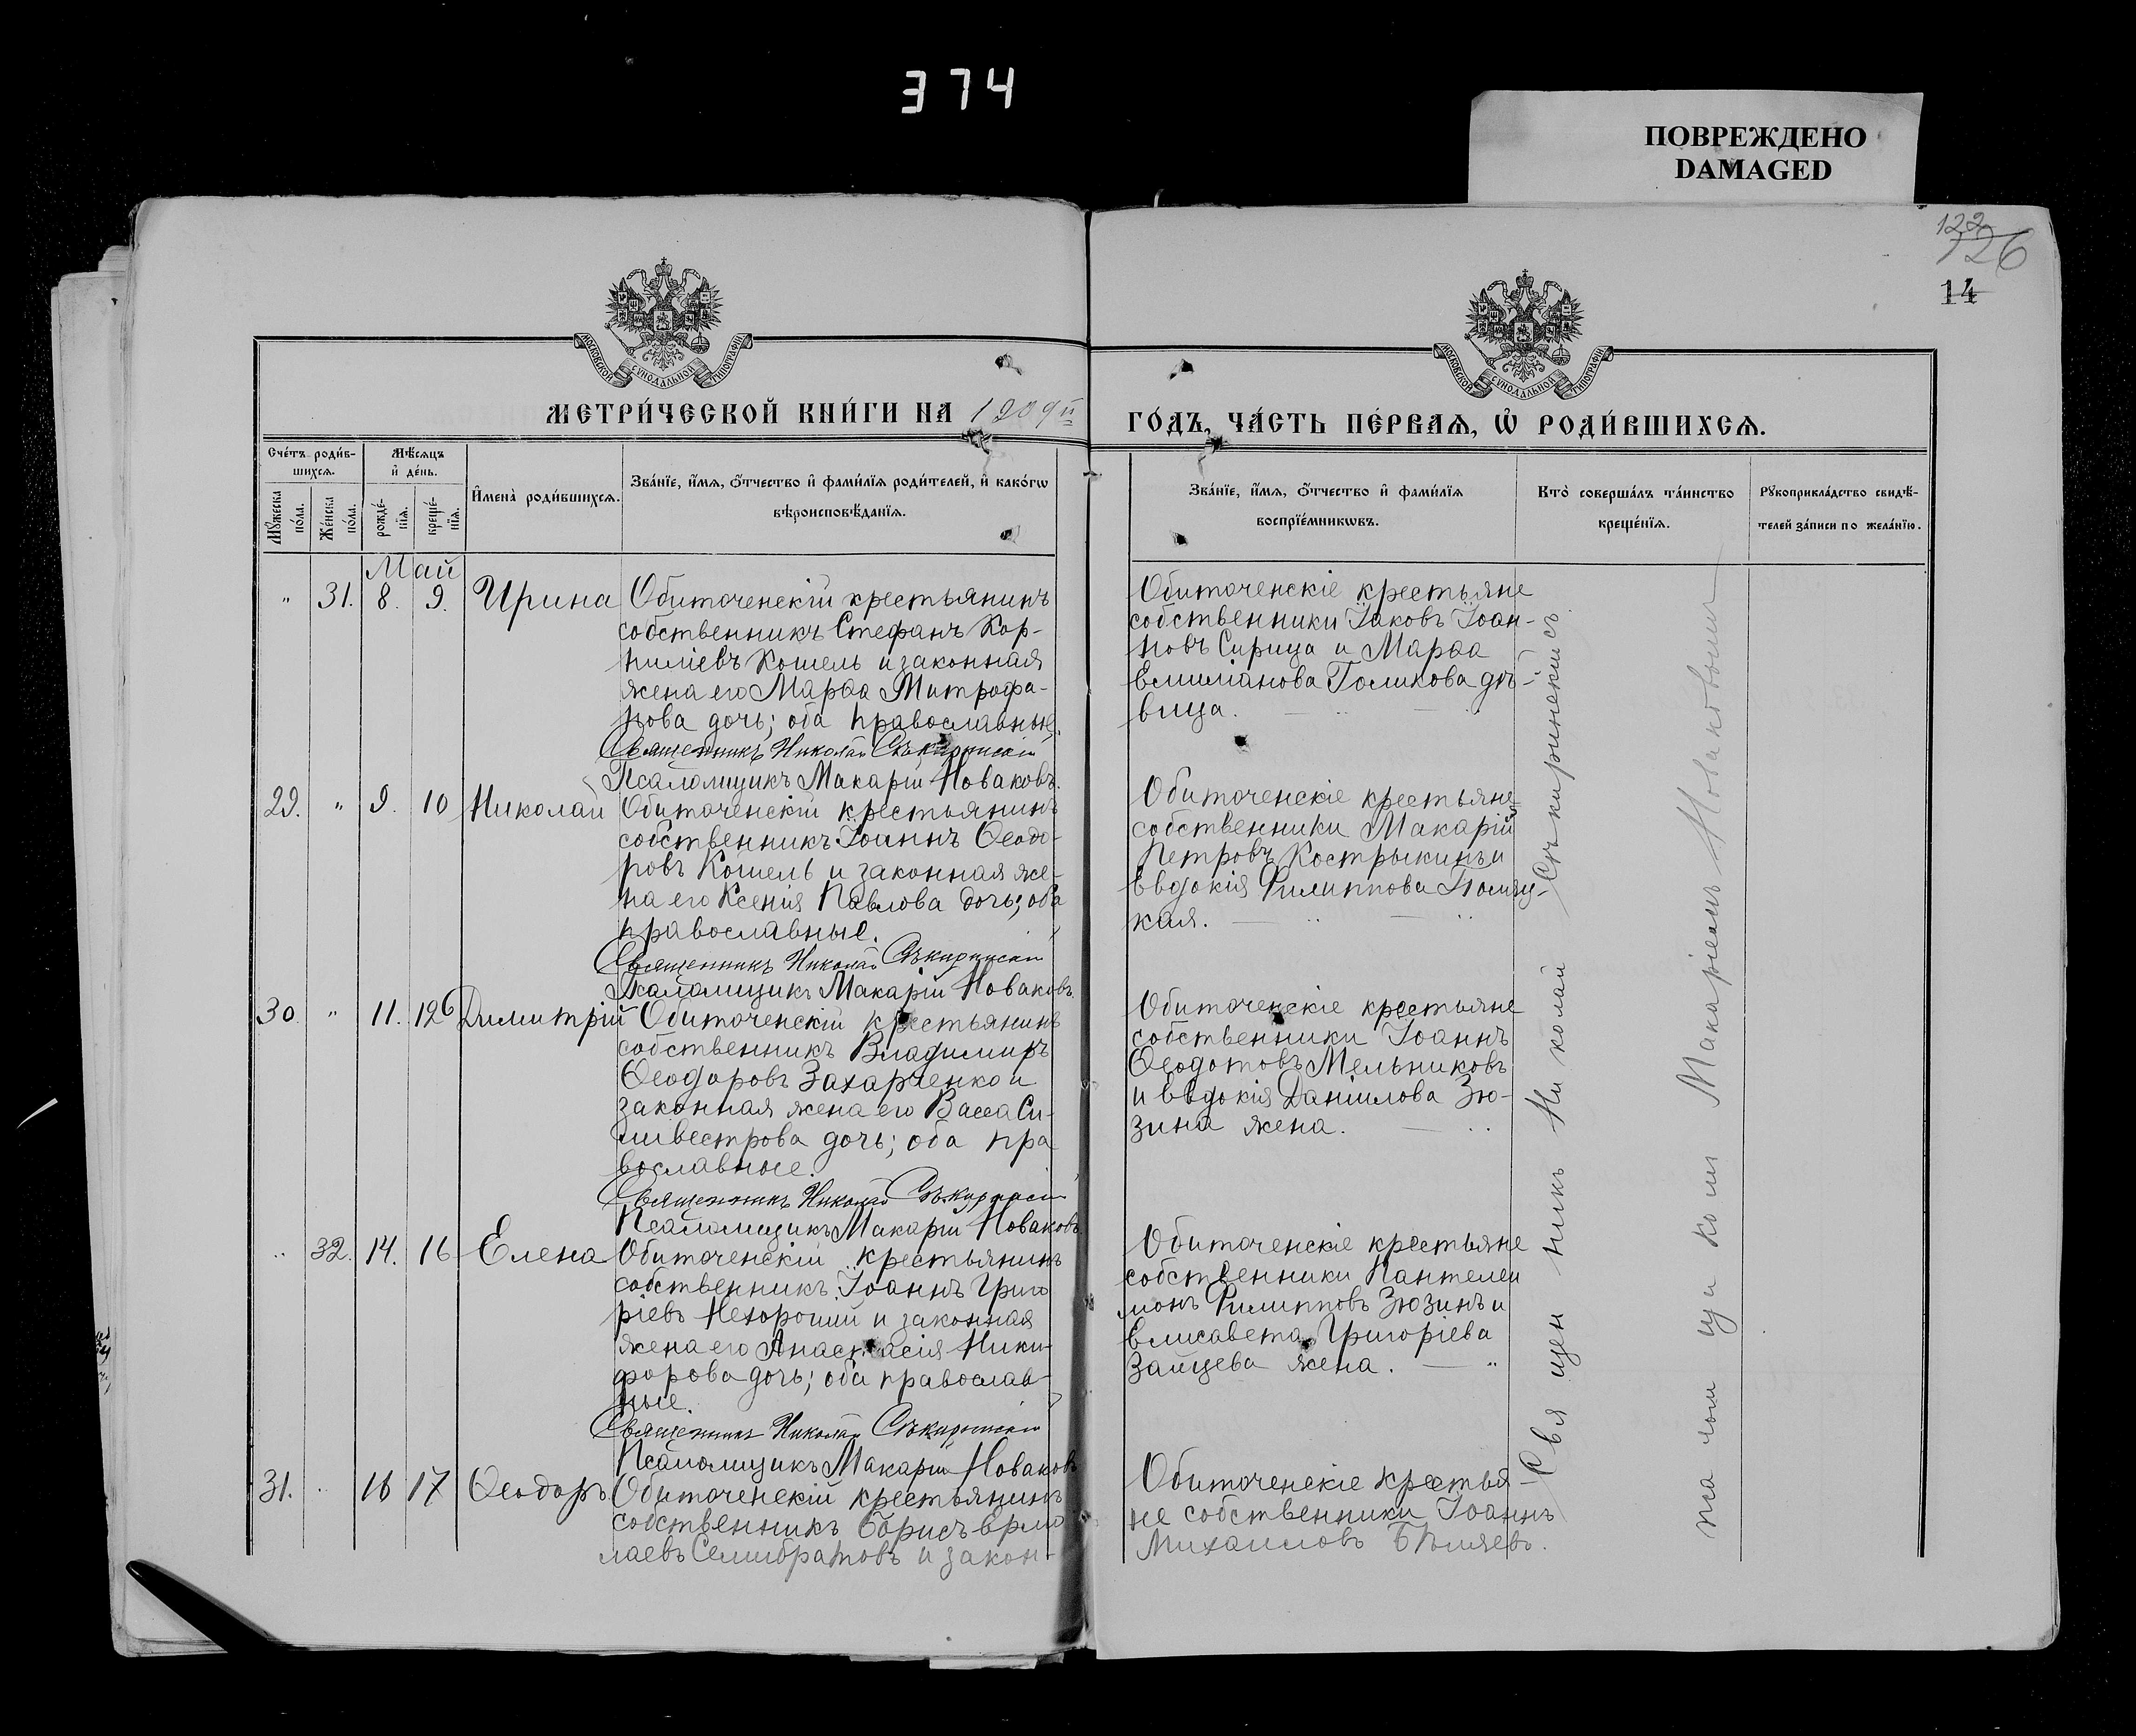 374
ПОВРЕЖДЕНО
DAMAGED
122
126
14
МОСКОВСКОЙ СѴНОДАЛЬНОЙ ТИПОГРАФІИ
МОСКОВСКОЙ СѴНОДАЛЬНОЙ ТИПОГРАФІИ
МЕТРИ́ЧЕСКОЙ КНИ́ГИ НА 1909й ГО́ДЪ, ЧА́СТЬ ПЕ́РВАѦ, Ѡ҆ РОДИ́ВШИХСѦ.
Сче́тъ роди́в-
шихсѧ.
Мꙋ́жеска по́ла.
Же́нска по́ла.
Мѣ́сѧцъ
и҆ де́нь.
рожде́-
нїѧ.
креще́-
нїѧ.
И҆мена̀ роди́вшихсѧ.
Зва́нїе, и҆́мѧ, ѻ҆́тчество и҆ фами́лїѧ роди́телей, и҆ како́гѡ
вѣроисповѣ́данїѧ.
Зва́нїе, и҆́мѧ, ѻ҆́тчество и҆ фами́лїѧ
воспрїе́мникѡвъ.
Кто̀ соверша́лъ та́инство
креще́нїѧ.
Рꙋкоприкла́дство свидѣ́-
телей за́писи по жела́нїю.
Май
" 31. 8. 9. Ирина
Обиточенскій крестьянинъ
собственникъ Стефанъ Кор-
ниліевъ Кошель и законная
жена его Марѳа Митрофа-
нова дочь; оба православные.
Священникъ Николай Сѣкиринскій
Псаломщикъ Макарій Новаковъ.
Обиточенскіе крестьяне
собственники Іаковъ Іоан-
новъ Сирица и Марѳа
Емиліанова Голикова дѣ-
вица.
29. " 9. 10 Николай
Обиточенскій крестьянинъ
собственникъ Іоаннъ Ѳеодо-
ровъ Кошель и законная же-
на его Ксенія Павлова дочь; оба
православные.
Священникъ Николай Сѣкиринскій
Псаломщикъ Макарій Новаковъ.
Обиточенскіе крестьяне
собственники Макарій
Петровъ Кострыкинъ и
Евдокія Филиппова
кая.
30 " 11. 12 Димитрій
Обиточенскій крестьянинъ
собственникъ Владимиръ
Ѳеодоровъ Захарченко и
законная жена его Васса Си-
ливестрова дочь; оба пра
вославные.
Священникъ Николай Сѣкиринскій
Псаломщикъ Макарій Новаковъ.
Обиточенскіе крестьяне
собственники Іоаннъ
Ѳеодотовъ Мельниковъ
и Евдокія Даніилова Зю-
зина жена.
" 32. 14. 16 Елена
Обиточенскій крестьянинъ
собственникъ Іоаннъ Григо
ріевъ Нехорошій и законная
жена его Анастасія Ники-
форова дочь; оба православ-
ные.
Священникъ Николай Сѣкиринскій
Псаломщикъ Макарій Новаковъ
Обиточенскіе крестьяне
собственники Пантелеи
монъ Филипповъ Зюзинъ и
Елисавета Григоріева
Зайцева жена.
31. " 16 17 Ѳеодоръ
Обиточенскій крестьянинъ
собственникъ Борисъ Ермо
лаевъ Семибратовъ и закон-
Обиточенскіе крестья-
не собственники Іоаннъ
Михаиловъ Бѣляевъ.
Священникъ Николай Сѣкиринскій съ
псаломщикомъ Макаріемъ Новаковымъ